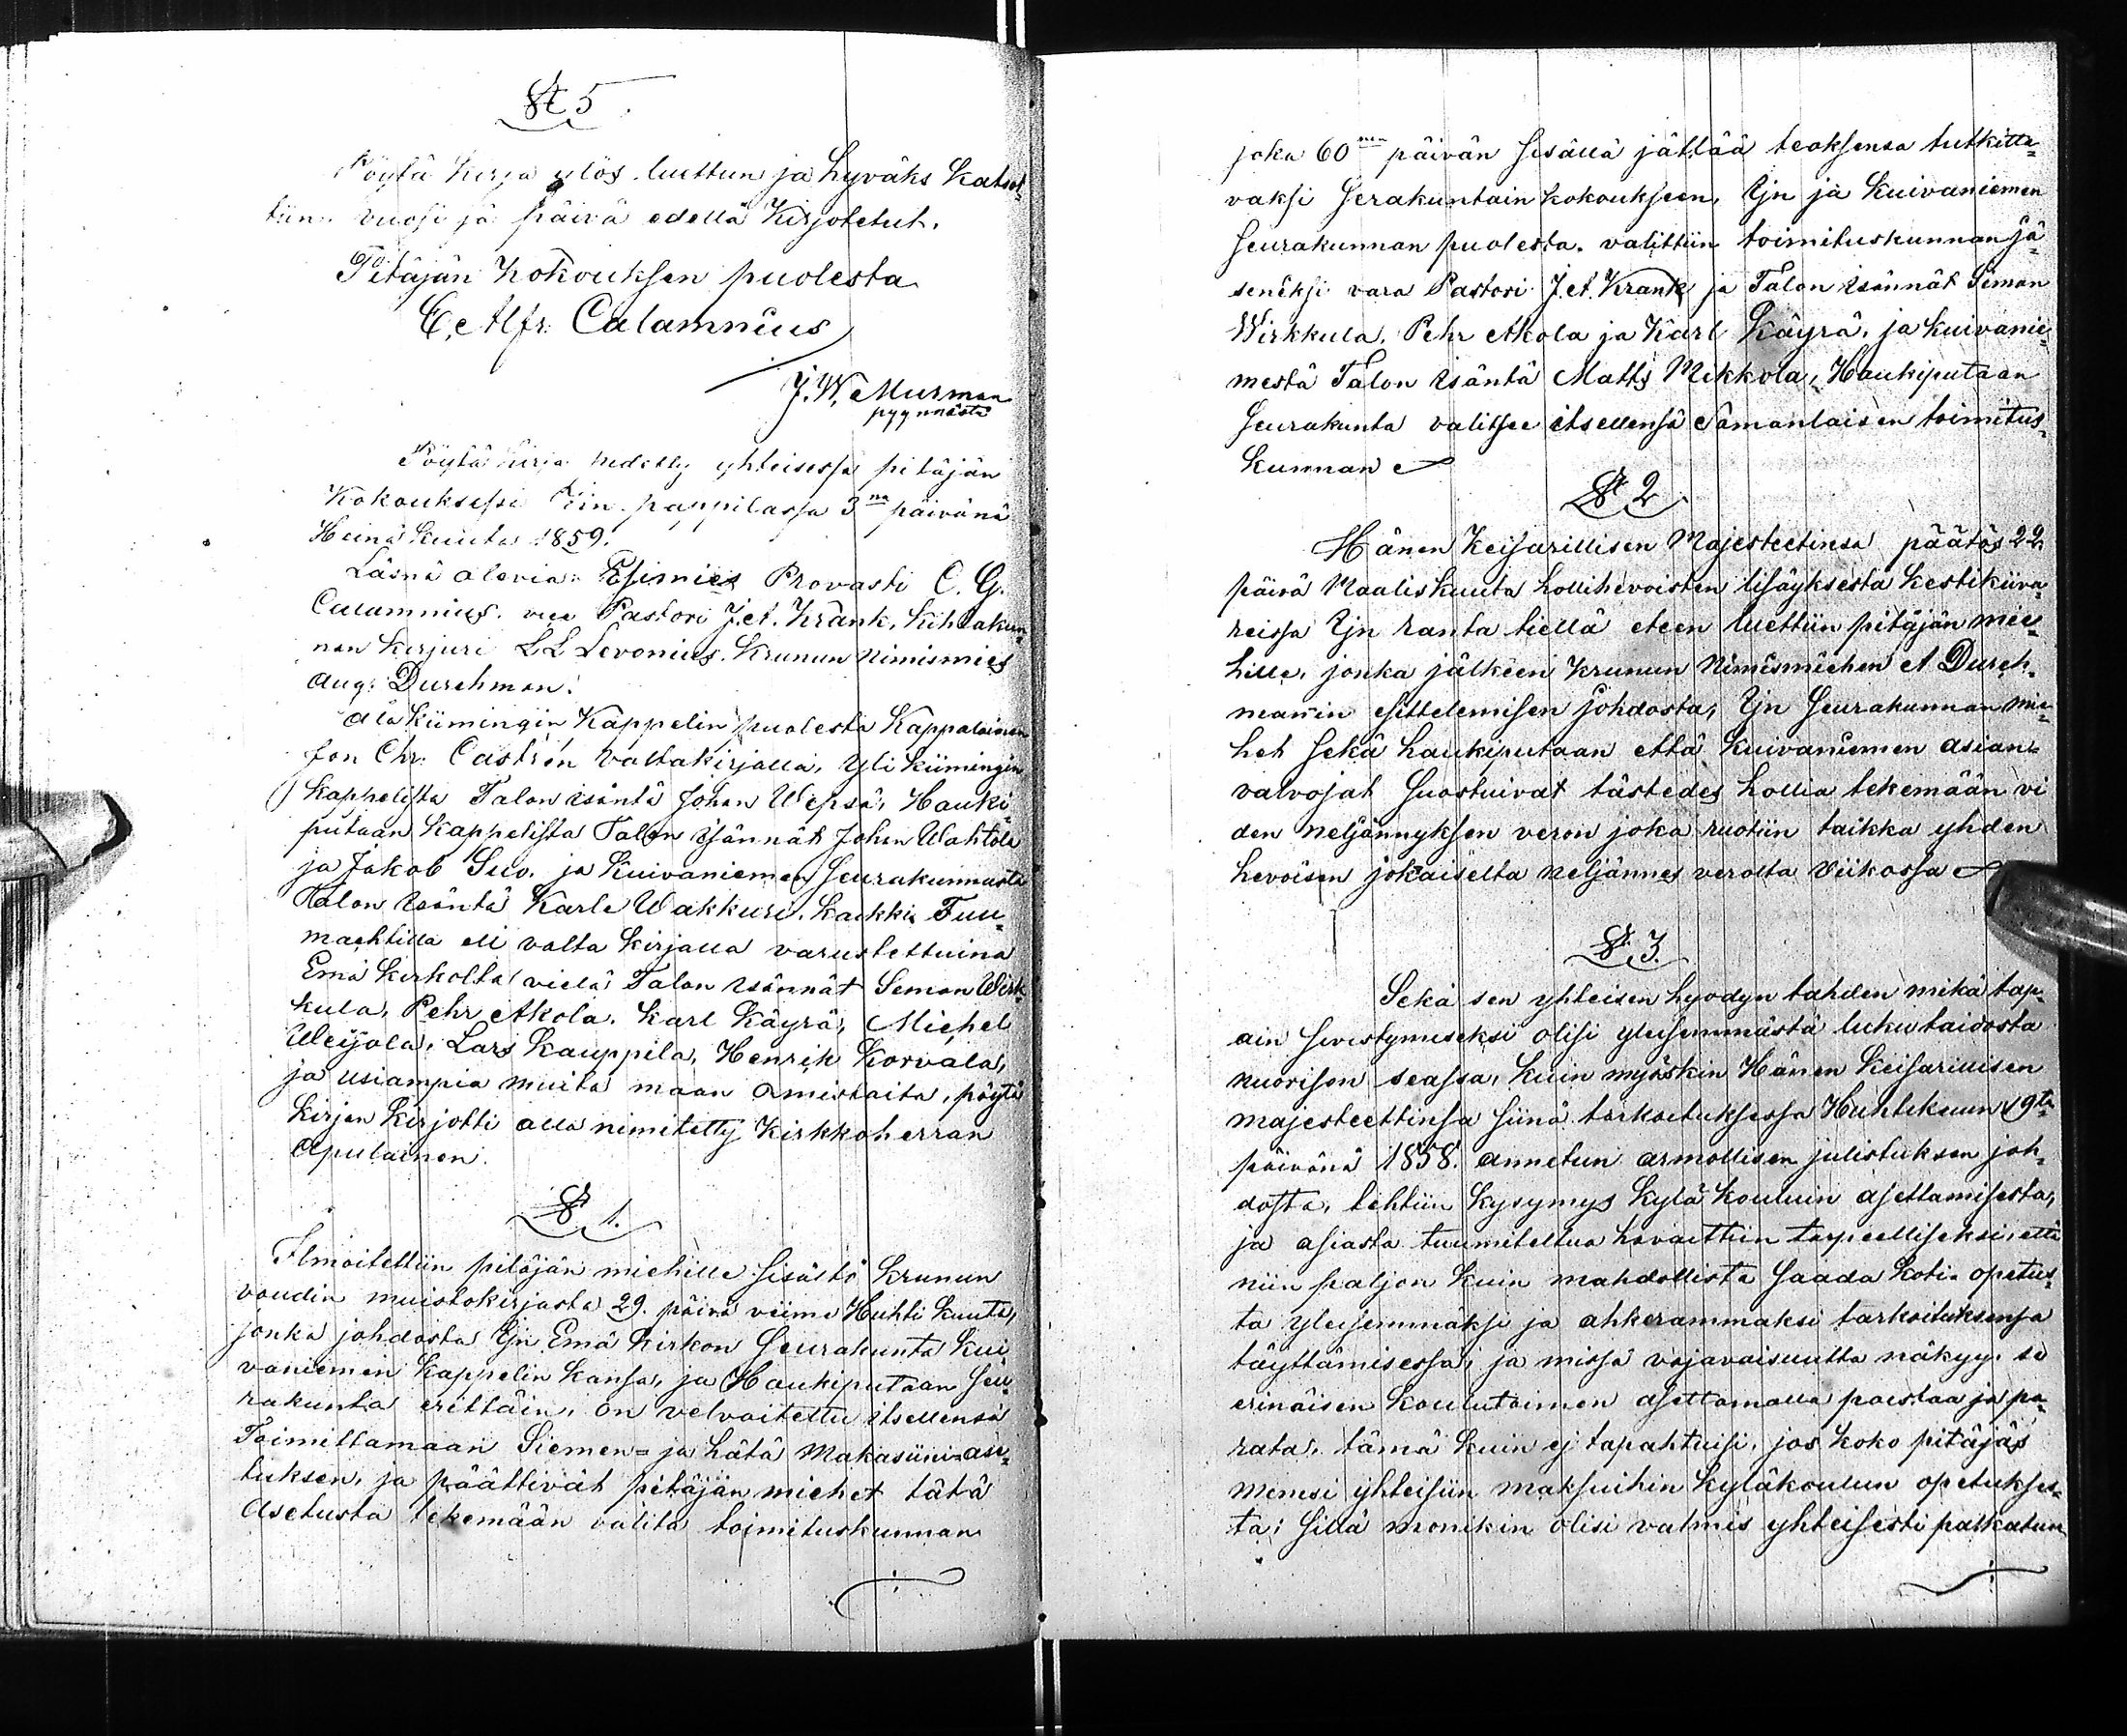 § 5.
Pöytä kirja ylös luettun ja hyväks katsot¬
tiin. vuosi ja päivä edellä kirjotetut.
Pitäjän kokouksen puolesta
C. Alfr. Calamnius
J. W. Murman
pyynnöstä
Pöytä kirja pidetty yhteisessä pitäjän
Kokouksessa Iin pappilassa 3na päivänä
Heinä kuuta 1859.
Läsnä olevia: Esimies Provasti C. G.
Calamnius. vice Pastori J. A. Krank, Kihlakun
nan kirjuri L L Levonius. Krunun Nimismies
Aug: Durchman.
Ala Kiimingin Kappelin puolesta Kappalainen
Jon Chr: Castrén valtakirjalla, Yli Kiimingin
Kappelista Talon isäntä Johan Wepsä, Hauki¬
putaan Kappelista Talon isännät Johan Wahtola
ja Jakob Suv. ja Kuivaniemen Seurakunnasta
Talon isäntä Karle Wakkuri. kaikki Fuu¬
machtilla eli valta kirjalla varustettuina
Emä kirkolta vielä Talon isännät Semon Wirk
kula, Pehr Akola. Karl Käyrä, Michel
Weijola, Lars Kauppila, Henrik Korvala,
ja usiampia muita maan omistaita, pöytä
kirjan kirjotti alla nimitetty Kirkkoherran
Apulainen.
§ 1.
Ilmoitettiin pitäjän miehille sisältö Krunun
voudin muistokirjasta 29. päivä viime Huhti kuuta,
jonka johdosta Ijn Emä kirkon Seurakunta Kui
vaniemen Kappelin kansa, ja Haukiputaan Seu¬
rakunta erittäin, on velvoitettu itsellensä
Toimittamaan Siemen= ja hätä Makasiini=ase¬
tuksen, ja päättivät pitäjän miehet tätä
Asetusta tekemään valita toimituskunnan
joka 60nen päivän sisällä jättää teoksensa tutkitta¬
vaksi Serakuntain kokoukseen, Ijn ja Kuivaniemen
Seurakunnan puolesta. valittiin toimituskunnan jä¬
seneksi vara Pastori J. A. Krank ja Talon isännät Simon
Wirkkula, Pehr Akola ja Karl Käyrä, ja Kuivanie¬
mestä Talon isäntä Matts Mikkola, Haukiputaan
Seurakunta valitsee itsellensä samanlaisen toimitus¬
kunnan
§ 2.
Hänen Keisarillisen Majesteetinsa päätös 22.
päivä Maaliskuuta hollihevoisten lisäyksestä kestikiiva¬
reissa Ijn ranta tiellä eteen luettiin pitäjän mie¬
hille, jonka jälkeen Krunun Nimismiehen A Durch¬
mannin esittelemisen johdosta, Ijn Seurakunnan mie¬
het sekä haukiputaan että Kuivaniemen asian¬
valvojat suostuivat tästedes hollia tekemään vi
den neljännyksen veron joka ruotiin taikka yhden
hevoisen jokaiselta neljännes verolta viikossa
§ 3.
Sekä sen yhteisen hyodyn tähden mikä tap¬
ain sivistymiseksi olisi yleisemmästä luku taidosta
nuorison seassa, kuin myöskin Hänen Keisarillisen
majesteettinsa siinä tarkoituksessa Huhtikuun 9ta
päivänä 1858. annetun armollisen julistuksen joh¬
dosta, tehtiin kysymys Kylä kouluin asettamisesta,
ja asiasta tuumiteltua havaittiin tarpeelliseksi, että
niin paljon kuin mahdollista saada koti= opetus¬
ta yleisemmäksi ja ahkerammaksi tarkoituksensa
täyttämisessä, ja missä vajavaisuutta näkyy. se
erinäisen koulutoimen asettamalla poistaa ja pa¬
rata, tämä kuin ej tapahtuisi, jos koko pitäjäs
menisi yhteisiin maksuihin kyläkoulun opetukses¬
ta; sillä monikin olisi valmis yhteisesti palkatun